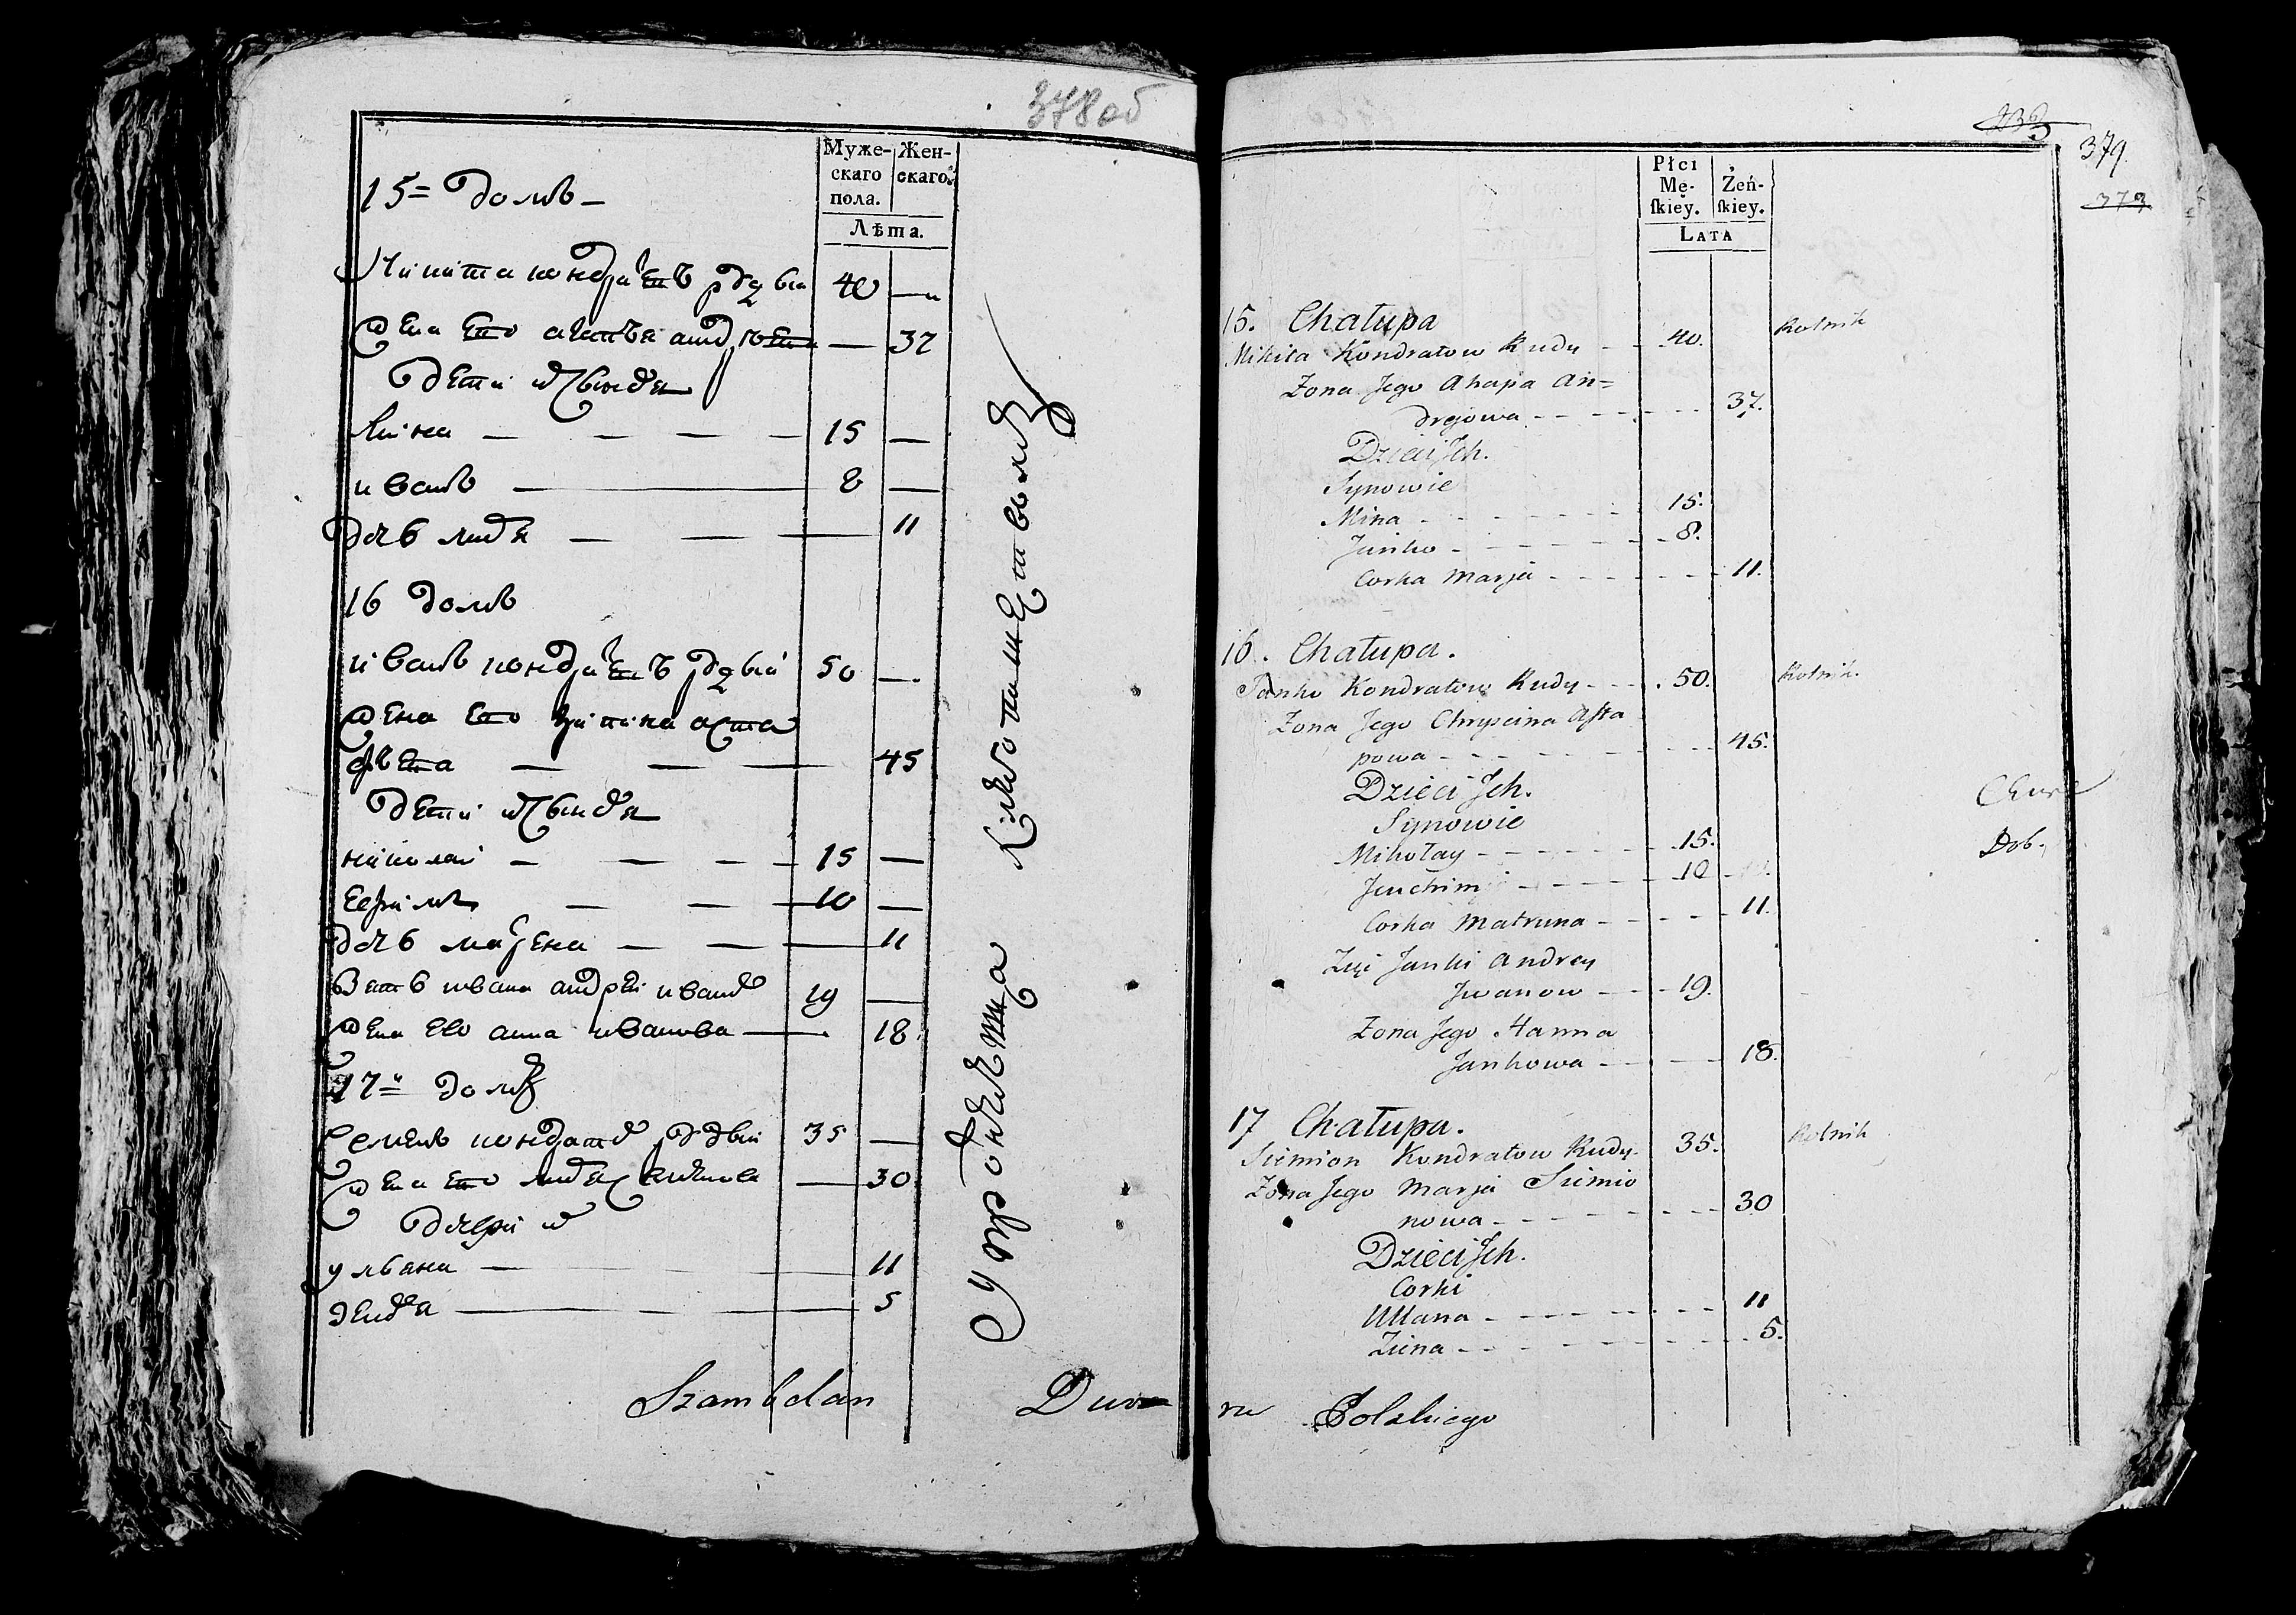 378 об
Муже-
скаго
пола.
Жен-
скаго.
Лѣта.
15 = домъ
Никита кондратевъ рудый 40
жена ево агапья андреева 37
дети их
Мина 15
иванъ 8
дочь марья 11
16 домъ
иванъ кондратевъ рудый 50
жена ево
45
дети их
николай 15
ефимъ 10
дочь матрена 11
Зять ивана андрей иванов 19
жена ево анна иванова 18
17 = домъ
Семенъ кондратов рудый 35
жена ево марья семенова 30
дочери их
ульяна 11
зеновя 5
Szambelan Dwo
379.
373
Płci
Mę-
skiey.
Żeń-
skiey.
Lata
15. Chałupa
Mikita Kondratow Rudy 40. Rolnik
Żona Jego Ahapa An=
drejowa 37.
Dzieci Jch.
Synowie
Mina 15.
Janko 8.
Corka Marja 11.
16. Chałupa.
Janko Kondratow Rudy 50. Rolnik.
Żona Jego Chryscina Asta
powa 45.
Dzieci Jch.
Synowie
Mikołay 15.
Juchim 10
Corka Matruna 11.
Zię Janki Andrey
Jwanow 19.
Żona Jego Hanna
Jankowa 18.
Dob.
17 Chałupa.
Siemion Kondratow Rudy 35. Rolnik
Żona Jego Marja Siemio
nowa 30
Dzieci Jch.
Corki
Ullana 11
Ziena 5.
ru Polskiego